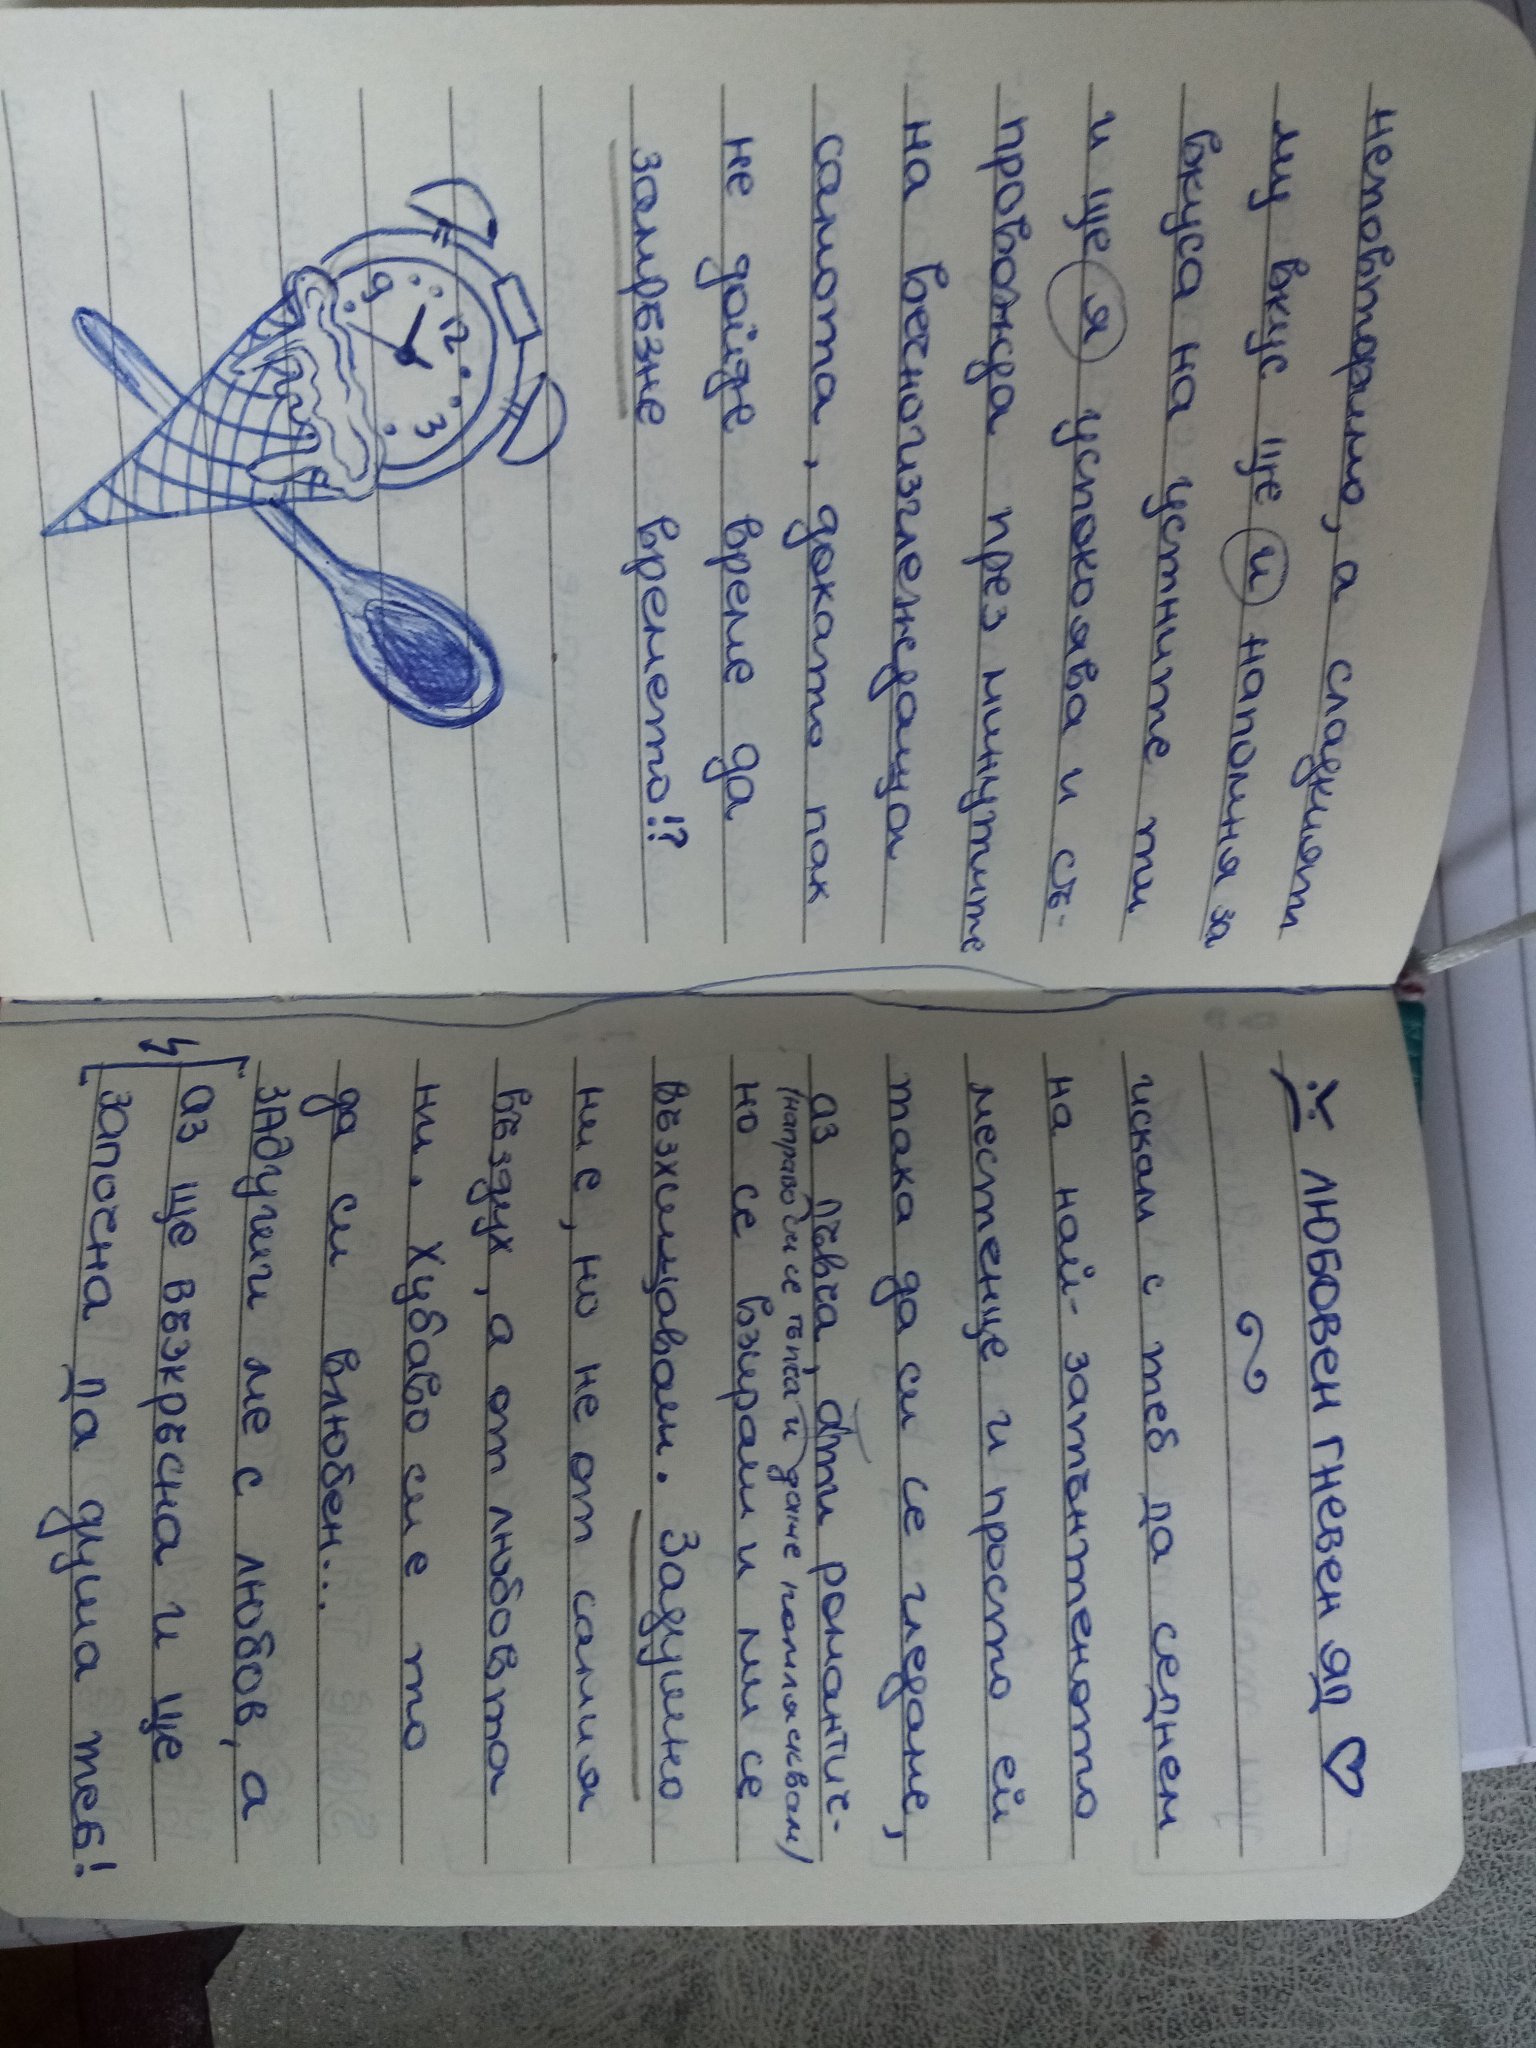 неповторимо, а сладкият
му вкус ще и напомня за
вкуса на устните ти
и ще я успокоява и съ-
провожда през минутите
на вечноизглеждаща
самота, докато пак
не дойде време да
замръзне времето!?
12
9
3
ЛЮБОВЕН ГНЕВЕН ЯД ♡
искам с теб да седнем
на най-затънтеното
местенце и просто ей
така да си се гледаме,
аз пъвча, ти романтич-
(направо си се тъпча и даже помлясквам)
но се взирам и ми се
възхищавам. Задушно
ми е, но не от самия
въздух, а от любовта
ни. Хубаво ми е то
да си влюбен...
ЗАдуши ме с любов, а
аз ще възкръсна и ще
започна да душа теб!